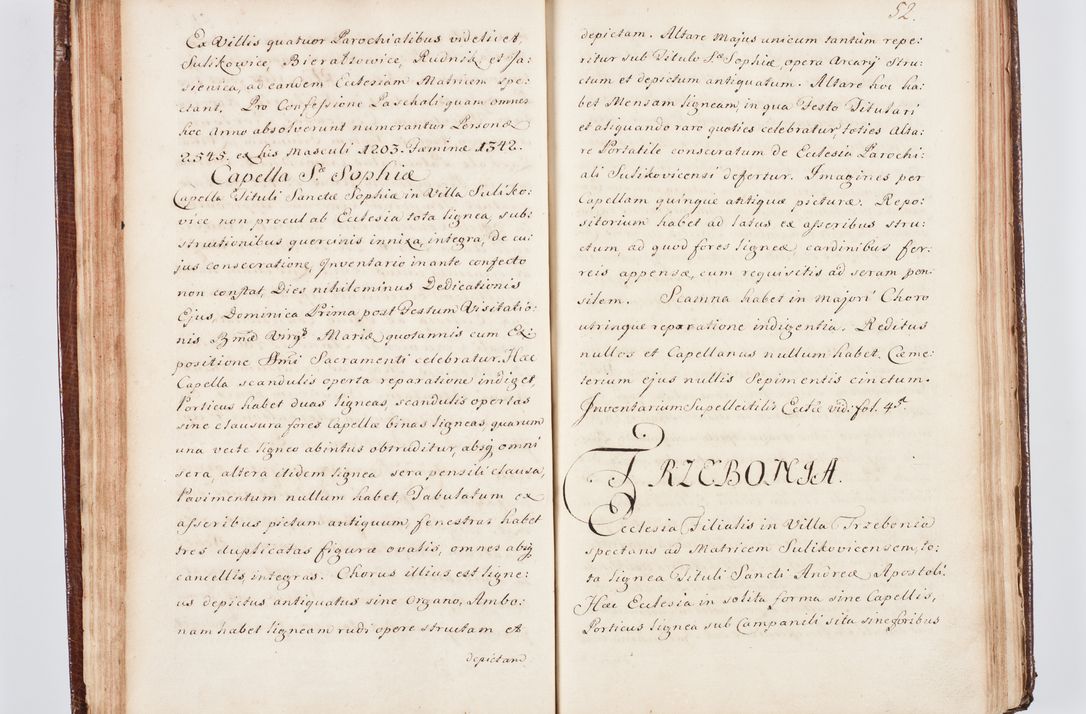 Ex Villis quatuor Parochialibus videlicet,
Sulikowice, Bieraltowice, Rudnik et Ja:
sienica, ad eandem Ecclesiam Matricem spe:
ctant. Pro Confessione Paschali quam omnes
hoc Anno absolverunt numerantur Personæ
2545. ex his Masculi 1203. Fæminæ 1342.
Capella Sæ Sophiæ
Capella Tituli Sanctæ Sophiæ in Villa Suliko:
vice non procul ab Ecclesia tota lignea, sub:
structionibus quercinis innixa, integra, de cu:
jus consecratione, Inventario in ante confecto
non constat, Dies nihilominus Dedicationis
Ejus, Dominica Prima post Festum Visitatio:
nis Bmæ Virgs Mariæ quotannis cum Ex:
positione Ssmi Sacramenti celebratur. Hæc
Capella scandulis operta reparatione indiget,
Porticus habet duas ligneas, scandulis opertas
sine clausura fores Capellæ binas ligneas, quarum
una vecte ligneo abintus obtruditur, absq omni
sera, altera itidem lignea sera pensili clausa,
Pavimentum nullum habet, Tabulatum ex
asseribus pictum antiquum, fenestras habet
tres duplicatas figuræ ovalis, omnes absq
cancellis, integras. Chorus illius est ligne:
us depictus antiquatus sine Organo, Ambo:
nam habet ligneam rudi opere structam et
depictam
52.
depictam. Altare Majus unicum tantùm repe:
ritur sub Titulo Sæ Sophiæ, opera Arcarij stru:
ctum et depictum antiquatum. Altare hoc ha:
bet Mensam ligneam, in qua Festo Titulari
et aliquando raro quoties celebratur, toties Alta:
re Portatile consecratum de Ecclesia Parochi:
ali Sulikovicensi defertur. Imagines per
Capellam quinque antiquæ picturæ. Repo:
sitorium habet ad latus ex asseribus stru:
ctum, ad quod fores ligneæ cardinibus fer:
reis appensæ, cum requisitis ad seram pen:
silem. Scamna habet in majori Choro
utrinque reparatione indigentia. Reditus
nullos et Capellanus nullum habet. Cæme:
terium ejus nullis Sepimentis cinctum.
Inventarium Supellectilis Ecclæ vid: fol. 4st.
TRZEBONIA.
Ecclesia Filialis in Villa Trzebonia
spectans ad Matricem Sulikovicensem, to:
ta lignea Tituli Sancti Andreæ Apostoli.
Hæc Ecclesia in solita forma sine Capellis,
Porticus lignea sub Campanili sita sine foribus